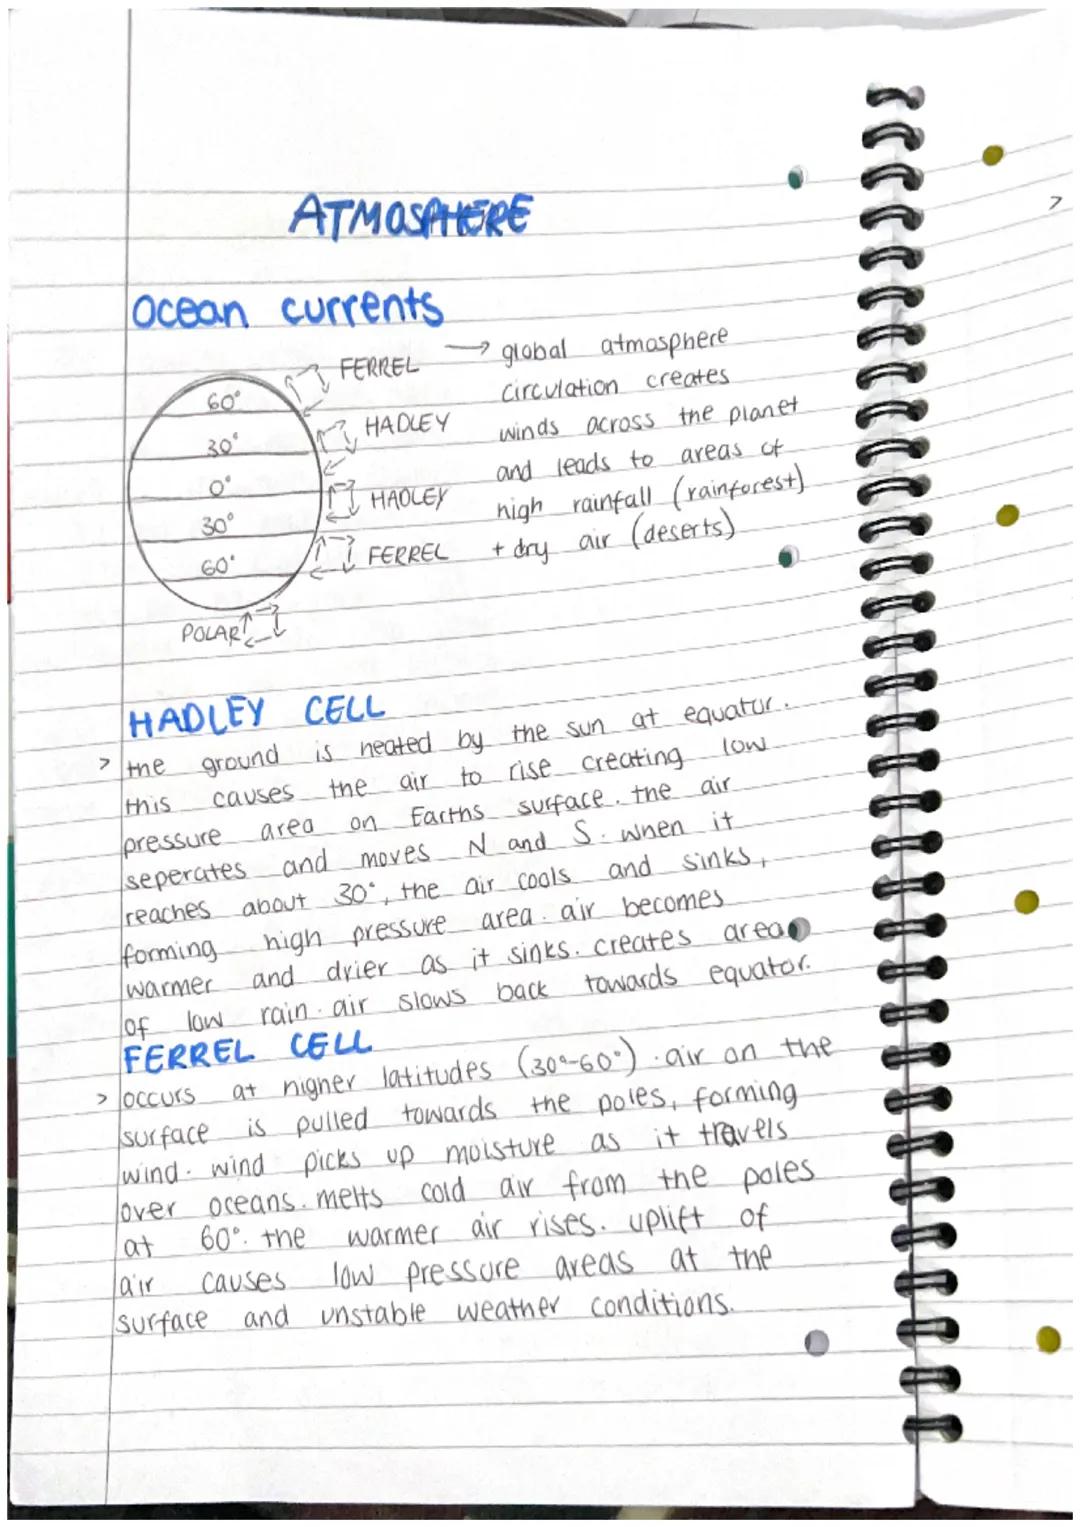 ATMOSPHERE
Ocean currents
FERREL
HADLEY
HADLEY
FERREL
POLAR
60°
30°
0°
30°
60°
→ global atmosphere
circulation creates
winds across the planet
and leads to areas of
high rainfall (rainforest)
+ dry air (deserts)
HADLEY CELL
> the ground is heated by the sun at equator.
this causes the air to rise creating low
pressure area on Earths surface. the air
seperates and moves N and S. when it
reaches about 30°, the air cools and sinks,
forming high pressure area. air becomes
warmer and drier as it sinks. creates area
of low rain. air slows back towards equator.
FERREL CELL
> occurs at higher latitudes (30°-60°). air on the
surface is pulled towards the poles, forming
wind. wind picks up moisture as it travels
over oceans. melts cold air from the poles
at 60°. the warmer air rises. uplift of
air causes low pressure areas at the
surface and unstable weather conditions.